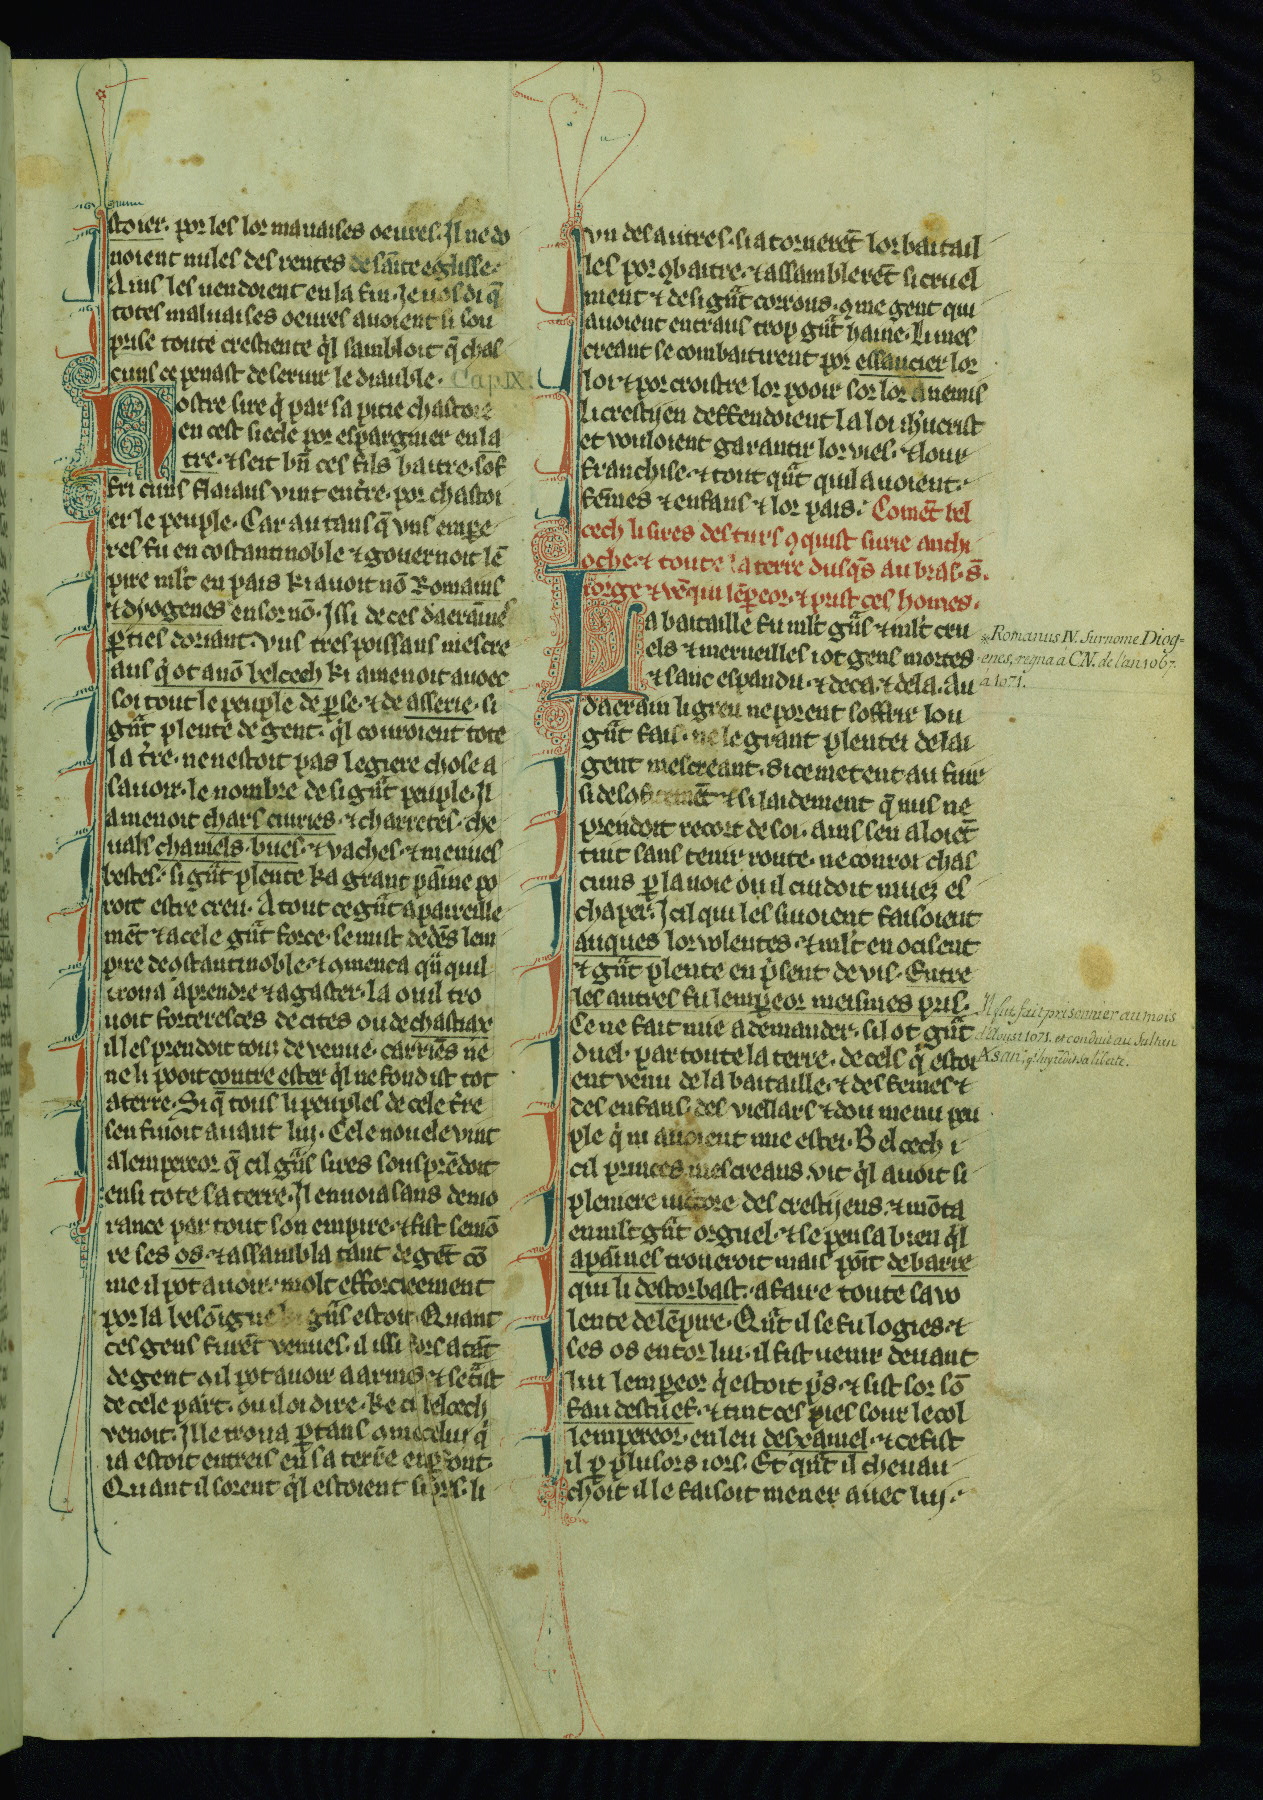 stoier. por les lor mauaises oeures. Il ne do
noient nules des rentes de sainte eglisse.
Ains les uendoient en la fin. Je uos di q̃
totes maluaises oeures auoient si sou
prise toute crestiente q̉l sambloit q̃ chas
cuns ce penast de seruir le diauble. Cap. IX.
Nostre sire q̉ par sa pitie chastoie
en cest siecle por espargnier en la
tre. ⁊ seit bñ ces fils baitre. sof
fri cuns flaiaus vint en tr̃e. por chastoi
er le peuple. Car au tans q̃ vns empe
res fu en costantinoble ⁊ gouernoit lẽ
pire ml̃t en pais ki auoit nõ Romains
⁊ dyogenes en sor nõ. Issi de ces daerãines
pties doriant. vns tres poissans mescre
ans q̉ ot a nõ belcech ki amenoit auoec
soi tout le peuple de pse. ⁊ de asserie. si
gũt plente de gent. q̉l couroient tote
la tr̃e. ne nestoit pas legiere chose a
sauoir. le nombre de si gũt peuple. Il
amenoit chars curries. ⁊ charretes. che
uals chamels. bues. ⁊ vaches. ⁊ menues
bestes. si gũt plente ka grant paĩne po
roit estre creu. A tout ce gũt apareille
mẽt ⁊ a cele gũt force. se mist dedẽs lem
pire de costantinoble. ⁊ omenca qũ quil
troua a prendre ⁊ a gaster. la ou il tro
uoit forteresces de cites ou de chastiax
il les prendoit tous de venue. carriẽs ne
ne li pooit contre ester q̉l ne fondist tot
a terre. Si q̃ tous li peuples de cele tr̃e
sen fuioit auant lui. Cele nouele vint
a lempereor q̃ cil gũs sires sousprẽdoit
ensi tote sa terre. Il enuoia sans demo
rance par tout son empire. ⁊ fist semõ
re ses os. ⁊ assambla tant de gẽt cõ
me il pot auoir. molt efforcieement
por la besoigne gũs estoit. Quant
ces gens furẽt venues. il issi fors a tãt
de gent o il pot auoir a armes ⁊ se trãist
de cele part. ou il oi dire. ke ci belcech
venoit. Il le troua p tans ome celui q̉
ia estoit entreis en sa terre en pfont.
Quant il sorent q̉l estoient si pres. li
vn des autres. si atornerẽt lor baitail
les por ꝯbaitre. ⁊ assamblerẽt si cruel
ment ⁊ de si gũt corrous. ꝯme gent qui
auoient entraus trop gũt haine. Li mes
creant se combaitirent por essaucier lor
loi ⁊ por croistre lor pooir sor lor anemis
li crestijen deffendoient la loi ih̃ucrist
et vouloient garantir lor vies. ⁊ lour
franchise. ⁊ tout qũt quil auoient.
femes ⁊ enfans ⁊ lor pais. Comẽt bel
cech li sires des turs ꝯquist surie anthi
oche. ⁊ toute la terre dusqs au bras. s̃.
iorge ⁊ vẽqui lẽpeor. ⁊ prist ces homes.
La baitaille fu ml̃t gũs ⁊ ml̃t cru
els ⁊ merueilles i ot gens mortes
⁊ sanc espandu. ⁊ deca. ⁊ dela. Au
daerain li greu ne porent soffrir lou
gũt fais. ne le grant plentei de lai
gent mescreant. Si ce metent au fuir
si desor ⁊ si laidement q̃ nus ne
prendoit recort de soi. ains sen aloiẽt
tuit sans tenir route. ne couroi chas
cuns p la uoie ou il cuidoit miez es
chaper. Icil qui les siuoient faisoient
auques lor volentes. ⁊ ml̃t en ocisent
⁊ gũt plente en p̃sent de vis. Entre
les autres fu lempeor meismes pris.
Ce ne fait mie a demander. sil ot gũt
duel. par toute la terre. de cels q̉ estoi
ent venu de la baitaille. ⁊ des femes ⁊
des enfans. des viellars ⁊ dou menu peu
ple q̉ ni auoient mie estei. Belcech i
cil princes mescreans. vit q̉l auoit si
pleniere uictore des crestijens. ⁊ mõta
en ml̃t gũt orguel. ⁊ se pensa bien q̉l
a paĩnes troueroit mais poĩt de barre
qui li destorbast. a faire toute sa vo
lente de lẽpire. Qũt il se fu logies. ⁊
ses os entor lui. il fist uenir deuant
lui lempeor q̉ estoit p̉s. ⁊ fist sor sõ
fau destuef. ⁊ tint ces pies sour le col
lempereor. en leu descamel. ⁊ ce fist
il p plusors iors. Et qũt il cheuau
choit il le faisoit mener auec luj.
Romanus IV. Surnome Diog=
enes, regna à C.N. de l'an 1067.
a 1071.
Il fut fait prisonnier au mois
d'Aoust 1071. et conduit au Sultan
Asan
5